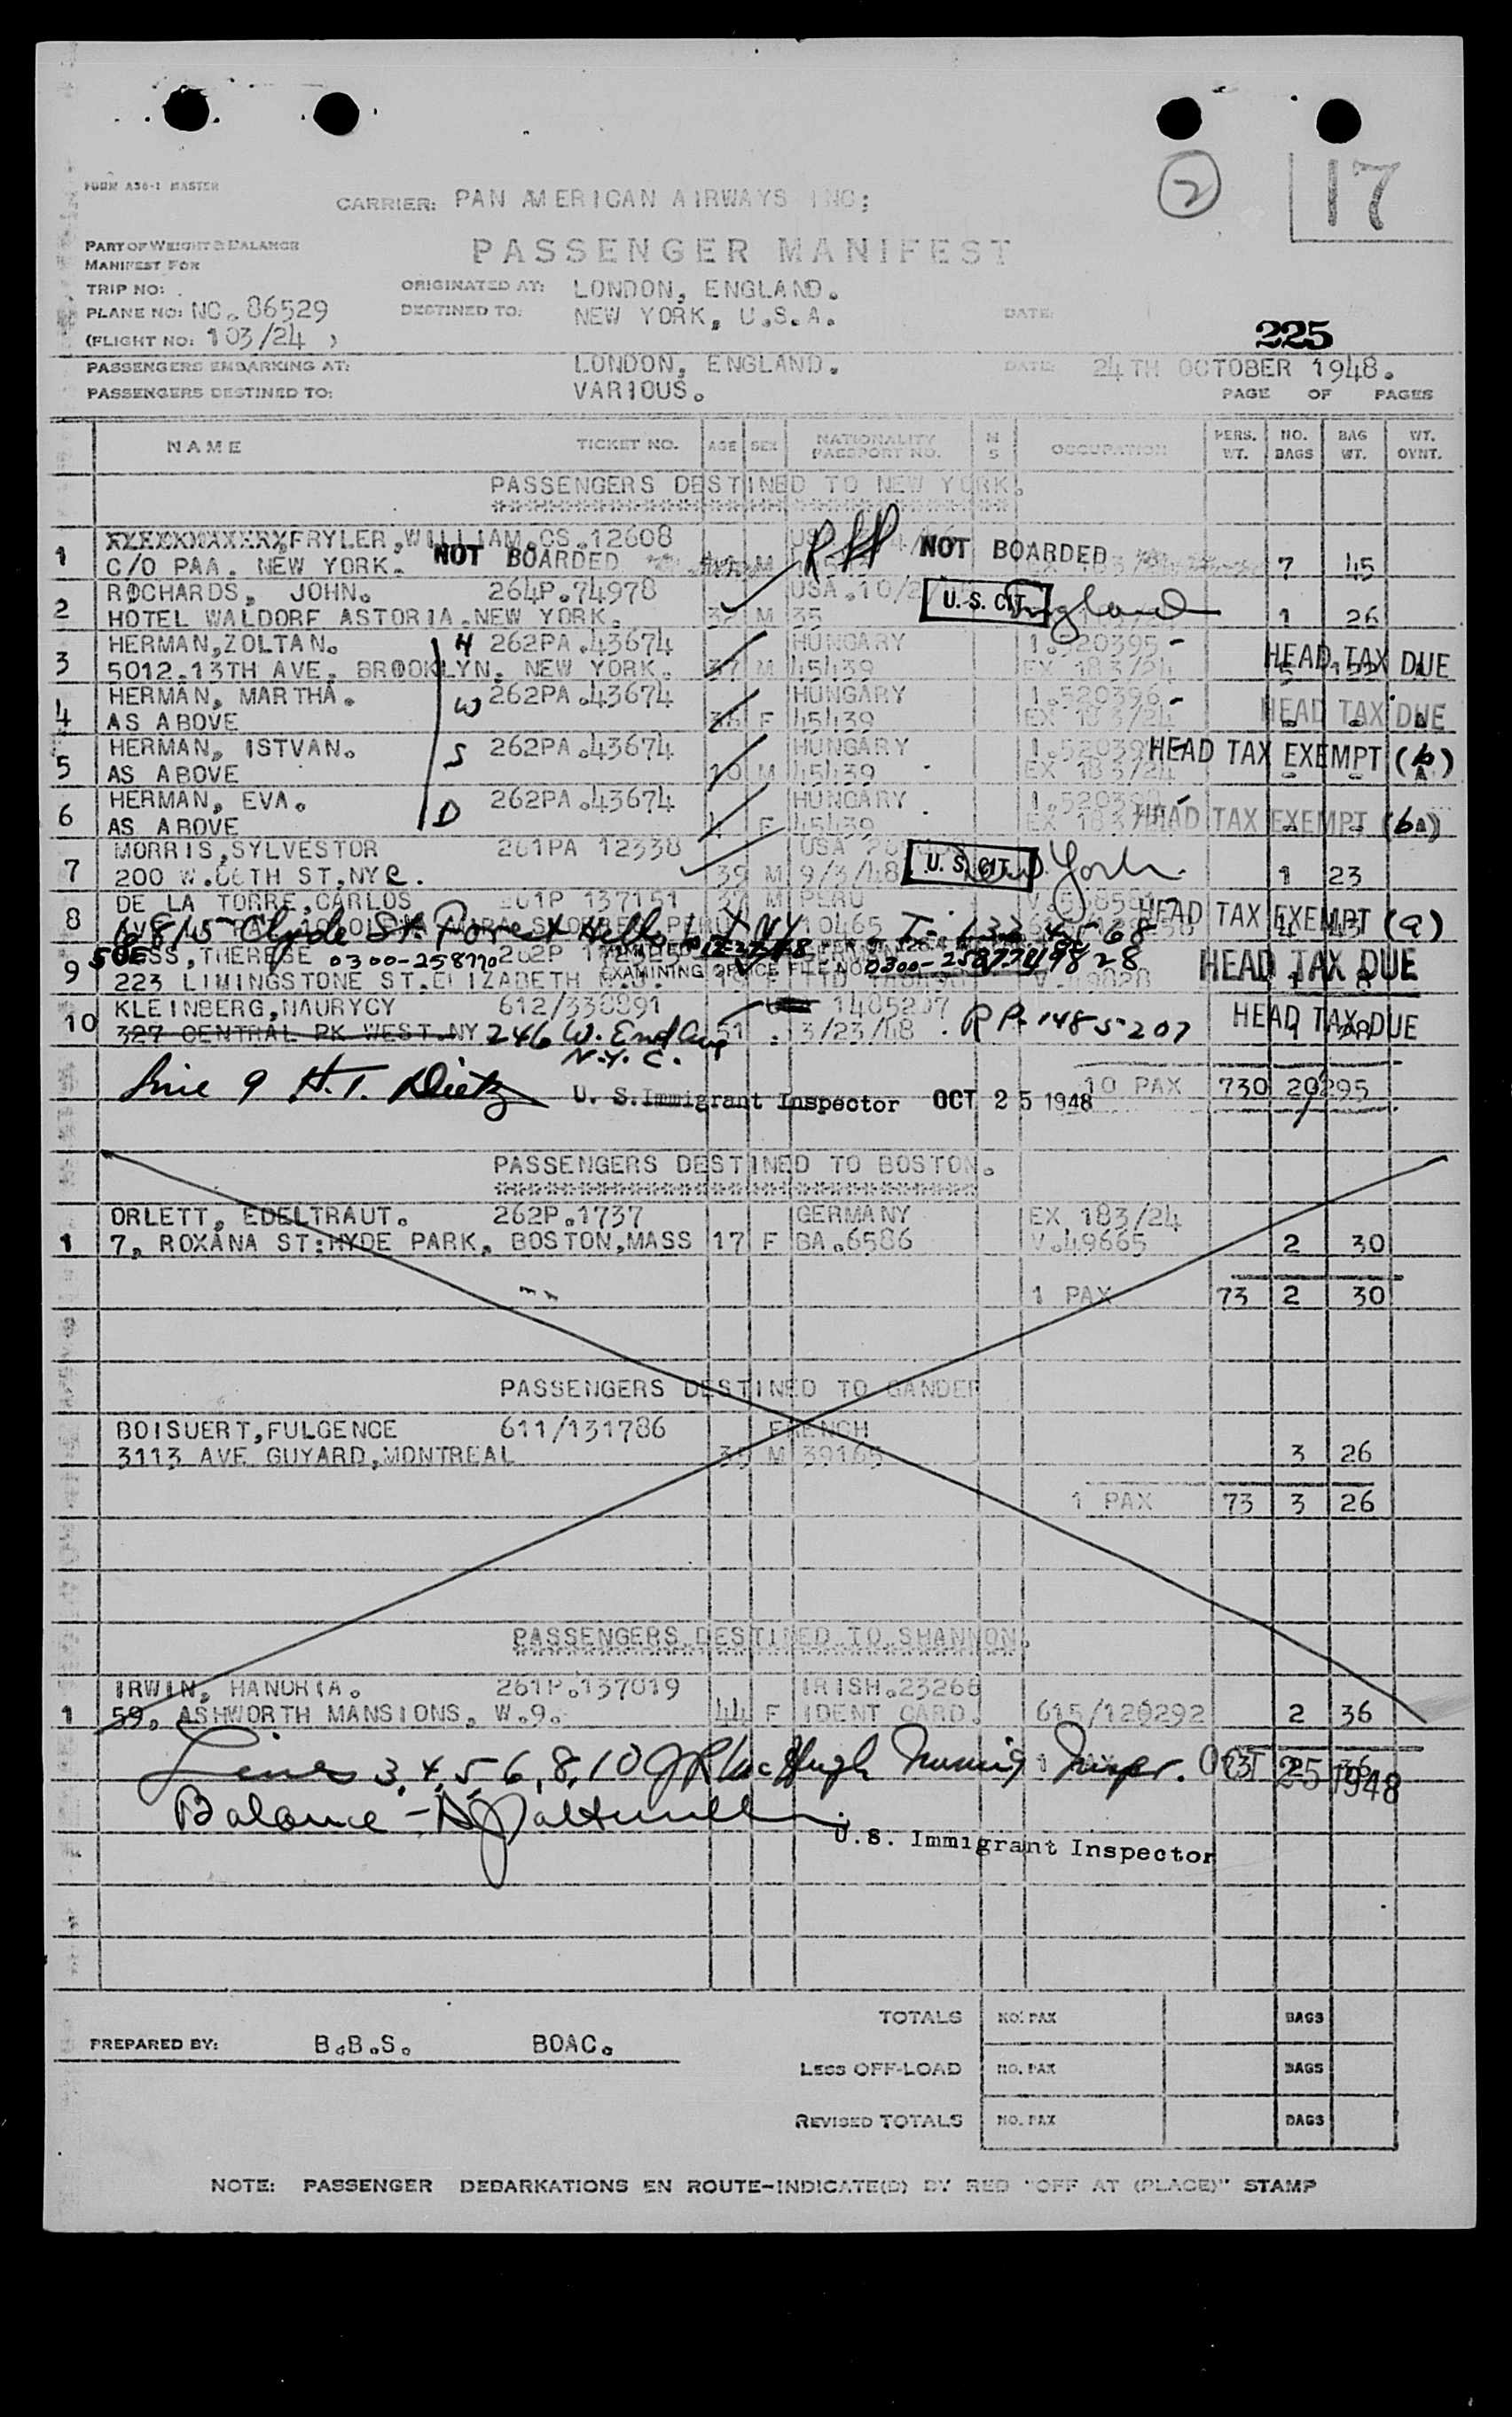 2
17
FORM A36-1 MASTER
CARRIER: PAN AMERICAN AIRWAYS INC;
PART OF WEIGHT & BALANCE
MANIFEST FOR
PASSENGER MANIFEST
TRIP NO:
ORIGINATED AT: LONDON, ENGLAND.
PLANE NO: NC. 86529
DESTINED TO: NEW YORK, U.S.A.
DATE:
225
(FLIGHT NO: 103/24 )
PASSENGERS EMBARKING AT: LONDON, ENGLAND. DATE: 24TH OCTOBER 1948.
PASSENGERS DESTINED TO: VARIOUS. PAGE OF PAGES
NAME TICKET NO. AGE SEX NATIONALITY PASSPORT NO. M S OCCUPATION PERS. WT. NO. BAGS BAG WT. WT. OVNT.
PASSENGERS DESTINED TO NEW YORK.
FRYLER, WILLIAM. CS. 12608
1 C/O PAA. NEW YORK. NOT BOARDED M NOT BOARDED 7 45
ROCHARDS, JOHN. 264P.74978 USA.10/2 U.S. CIT. England
2 HOTEL WALDORF ASTORIA. NEW YORK. 32 M 35 1 26
HERMAN, ZOLTAN. H 262PA.43674 HUNGARY 1.520395 -
3 5012. 13TH AVE. BROOKLYN. NEW YORK. 37 M 45439 EX 183/24 HEAD TAX DUE
HERMAN, MARTHA. W 262PA.43674 HUNGARY 1.520396 -
4 AS ABOVE 36 F 45439 EX 183/24 HEAD TAX DUE
HERMAN, ISTVAN. S 262PA.43674 HUNGARY
5 AS ABOVE 10 M 45439 EX 183/24 HEAD TAX EXEMPT (b)
HERMAN, EVA. D 262PA.43674 HUNGARY
6 AS ABOVE F 45439 HEAD TAX EXEMPT (b)
MORRIS, SYLVESTOR 261PA 12338 USA U.S. CIT. York
7 200 W. 66TH ST, NYC. 39 M 9/3/48 1 23
DE LA TORRE, CARLOS 261P 137151 37 M PERU
8 6815 Clyde St. Forest Hills 10465 HEAD TAX EXEMPT (a)
SUESS, THERESE 0300-258770
9 223 LIMINGSTONE ST. ELIZABETH N.J. 19 F V.49828 HEAD TAX DUE
KLEINBERG, MAURYCY 612/330891 1485207
10 327 CENTRAL PK WEST. NY 246 W. End Ave 51 3/23/48 RP. 1485207 HEAD TAX DUE
N.Y.C.
10 PAX 730 20 295
Line 9 H.T. Dietz U. S. Immigrant Inspector OCT 25 1948
PASSENGERS DESTINED TO BOSTON.
ORLETT, EDELTRAUT. 262P.1737 GERMANY EX 183/24
1 7, ROXANA ST: HYDE PARK, BOSTON, MASS 17 F BA.6586 V.49665 2 30
1 PAX 73 2 30
PASSENGERS DESTINED TO GANDER
BOISUERT, FULGENCE 611/131786 FRENCH
3113 AVE GUYARD, MONTREAL 39 M 39165 3 26
1 PAX 73 3 26
PASSENGERS DESTINED TO SHANNON.
IRWIN, HANORIA. 261P.137019 IRISH.23268
1 59, ASHWORTH MANSIONS, W.9. 44 F IDENT CARD. 615/120292 2 36
Lines 3, 4, 5, 6, 8, 10 McHugh Immig Insper. OCT 25 1948
Balance -
U.S. Immigrant Inspector
TOTALS NO. PAX BAGS
PREPARED BY: B.B.S. BOAC.
LESS OFF-LOAD NO. PAX BAGS
REVISED TOTALS NO. PAX BAGS
NOTE: PASSENGER DEBARKATIONS EN ROUTE-INDICATE(D) BY RED "OFF AT (PLACE)" STAMP